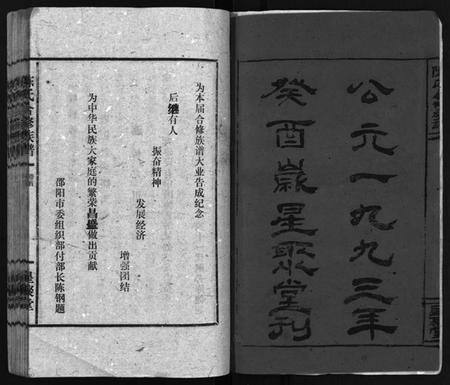 公元一九九三年
癸酉歲星聚堂刊
为本届合修族谱大业告成纪念
后继有人
振奋精神
发展经济
增强团结
为中华民族大家庭的繁荣昌盛做出贡献
邵阳市委组织部付部长陈钢题
陈氏合修族谱
星聚堂